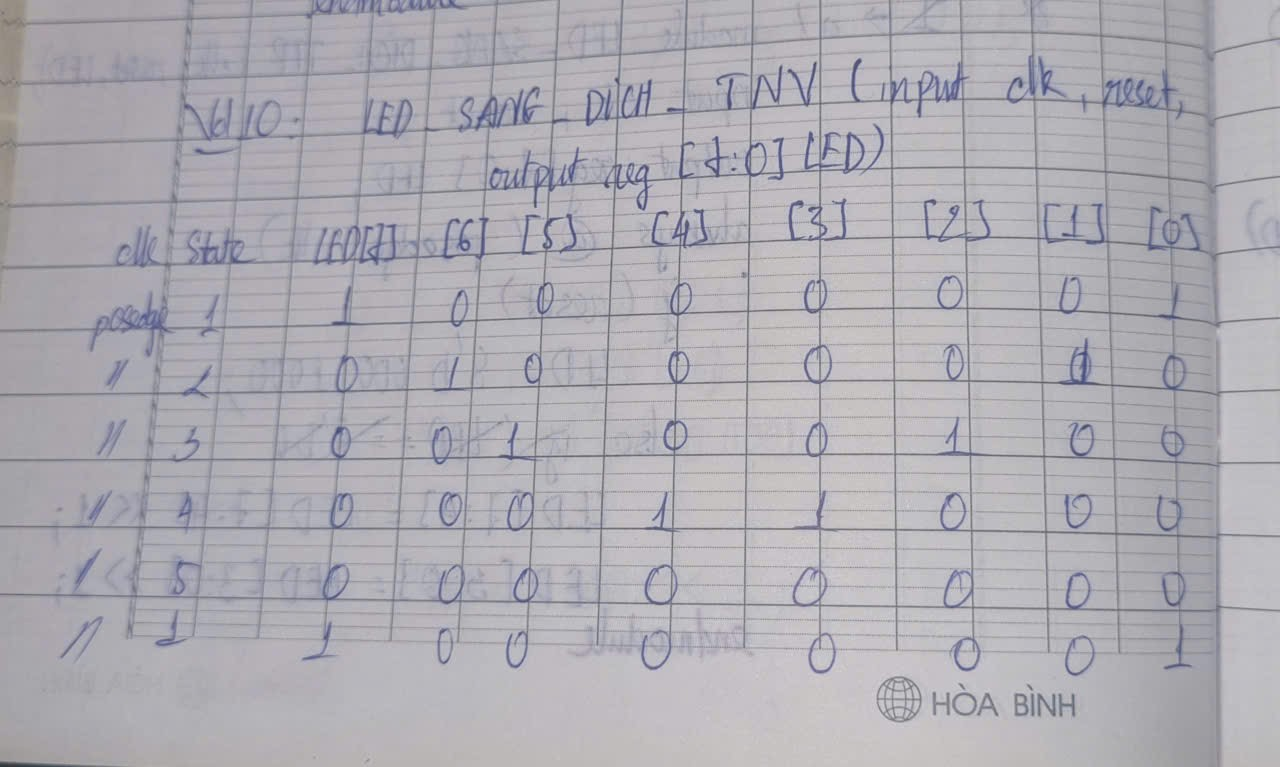 endmodule
Vd 10: LED_SANG_DICH_TNV (input clk, reset,
output reg [7:0] LED)
clk State LED[7] [6] [5] [4] [3] [2] [1] [0]
posedge 1 1 0 0 0 0 0 0 1
〃 2 0 1 0 0 0 0 1 0
〃 3 0 0 1 0 0 1 0 0
〃 4 0 0 0 1 1 0 0 0
〃 5 0 0 0 0 0 0 0 0
〃 1 1 0 0 0 0 0 0 1
HÒA BÌNH